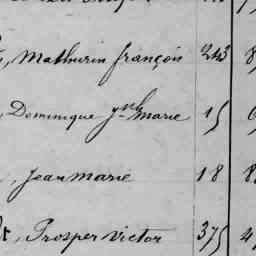 , Mathurin françois 243 8
, Dominique Y.nth marie 15 6
, Jean marie 18 8
t, Prosper victor 375 4